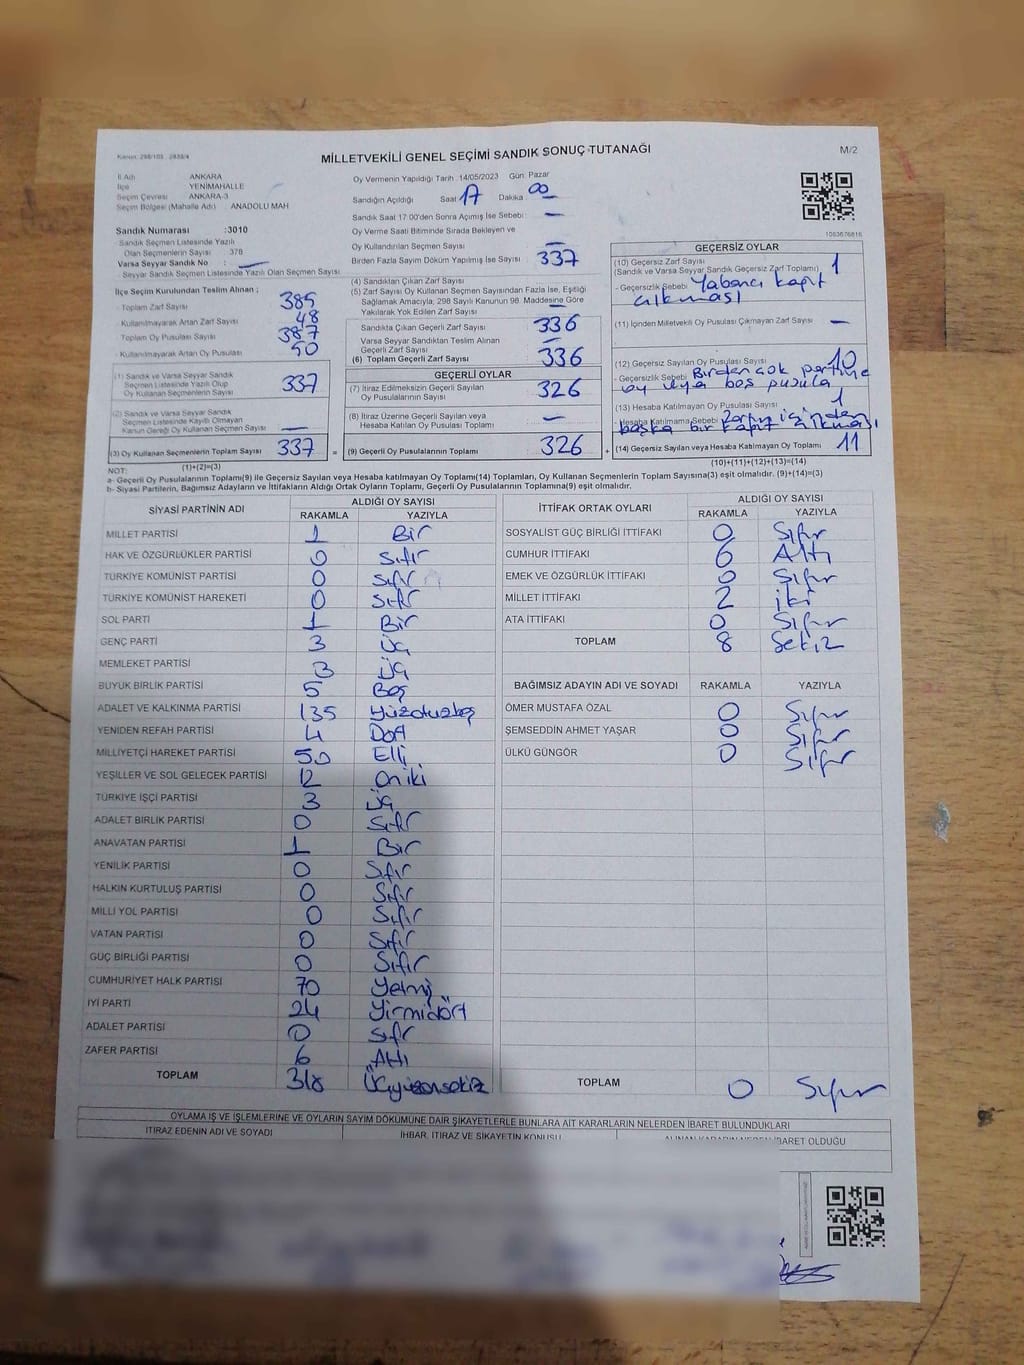 Kanun: 298/105 2839/4
MİLLETVEKİLİ GENEL SEÇİMİ SANDIK SONUÇ TUTANAĞI
M/2
İl Adı ANKARA
İlçe YENİMAHALLE
Seçim Çevresi ANKARA-3
Seçim Bölgesi (Mahalle Adı) : ANADOLU MAH
Oy Vermenin Yapıldığı Tarih : 14/05/2023 Gün: Pazar
Sandığın Açıldığı Saat 17 Dakika 00
Sandık Saat 17:00'den Sonra Açılmış İse Sebebi : —
Sandık Numarası :3010
Sandık Seçmen Listesinde Yazılı
Olan Seçmenlerin Sayısı : 378
Varsa Seyyar Sandık No : —
Seyyar Sandık Seçmen Listesinde Yazılı Olan Seçmen Sayısı
Oy Verme Saati Bitiminde Sırada Bekleyen ve
Oy Kullandırılan Seçmen Sayısı : —
Birden Fazla Sayım Döküm Yapılmış İse Sayısı : 337
İlçe Seçim Kurulundan Teslim Alınan ;
- Toplam Zarf Sayısı 385
- Kullanılmayarak Artan Zarf Sayısı 48
Toplam Oy Pusulası Sayısı 387
- Kullanılmayarak Artan Oy Pusulası 50
(1) Sandık ve Varsa Seyyar Sandık
Seçmen Listesinde Yazılı Olup
Oy Kullanan Seçmen Sayısı 337
(2) Sandık ve Varsa Seyyar Sandık
Seçmen Listesinde Kayıtlı Olmayan
Kanun Gereği Oy Kullanan Seçmen Sayısı —
(3) Oy Kullanan Seçmenlerin Toplam Sayısı 337 =
(1)+(2)=(3)
(4) Sandıktan Çıkan Zarf Sayısı
(5) Zarf Sayısı Oy Kullanan Seçmen Sayısından Fazla İse, Eşitliği
Sağlamak Amacıyla, 298 Sayılı Kanunun 98. Maddesine Göre
Yakılarak Yok Edilen Zarf Sayısı —
Sandıkta Çıkan Geçerli Zarf Sayısı 336
Varsa Seyyar Sandıktan Teslim Alınan
Geçerli Zarf Sayısı —
(6) Toplam Geçerli Zarf Sayısı 336
GEÇERLİ OYLAR
(7) İtiraz Edilmeksizin Geçerli Sayılan
Oy Pusulalarının Sayısı 326
(8) İtiraz Üzerine Geçerli Sayılan veya
Hesaba Katılan Oy Pusulası Toplamı —
(9) Geçerli Oy Pusulalarının Toplamı 326 +
1083676816
GEÇERSİZ OYLAR
(10) Geçersiz Zarf Sayısı
(Sandık ve Varsa Seyyar Sandık Geçersiz Zarf Toplamı) 1
- Geçersizlik Sebebi Yabancı kağıt
çıkması
(11) İçinden Milletvekili Oy Pusulası Çıkmayan Zarf Sayısı —
(12) Geçersiz Sayılan Oy Pusulası Sayısı 10
- Geçersizlik Sebebi Birden çok partiye
oy veya boş pusula
(13) Hesaba Katılmayan Oy Pusulası Sayısı 1
- Hesaba Katılmama Sebebi Zarfın içinden
başka bir kağıt çıkması
(14) Geçersiz Sayılan veya Hesaba Katılmayan Oy Toplamı 11
(10)+(11)+(12)+(13)=(14)
NOT:
a- Geçerli Oy Pusulalarının Toplamı(9) ile Geçersiz Sayılan veya Hesaba katılmayan Oy Toplamı(14) Toplamları, Oy Kullanan Seçmenlerin Toplam Sayısına(3) eşit olmalıdır. (9)+(14)=(3)
b- Siyasi Partilerin, Bağımsız Adayların ve İttifakların Aldığı Ortak Oyların Toplamı, Geçerli Oy Pusulalarının Toplamına(9) eşit olmalıdır.
SİYASİ PARTİNİN ADI ALDIĞI OY SAYISI
RAKAMLA YAZIYLA
MİLLET PARTİSİ 1 Bir
HAK VE ÖZGÜRLÜKLER PARTİSİ 0 Sıfır
TÜRKİYE KOMÜNİST PARTİSİ 0 Sıfır
TÜRKİYE KOMÜNİST HAREKETİ 0 Sıfır
SOL PARTİ 1 Bir
GENÇ PARTİ 3 Üç
MEMLEKET PARTİSİ 3 Üç
BÜYÜK BİRLİK PARTİSİ 5 Beş
ADALET VE KALKINMA PARTİSİ 135 Yüzotuzbeş
YENİDEN REFAH PARTİSİ 4 Dört
MİLLİYETÇİ HAREKET PARTİSİ 50 Elli
YEŞİLLER VE SOL GELECEK PARTİSİ 12 Oniki
TÜRKİYE İŞÇİ PARTİSİ 3 Üç
ADALET BİRLİK PARTİSİ 0 Sıfır
ANAVATAN PARTİSİ 1 Bir
YENİLİK PARTİSİ 0 Sıfır
HALKIN KURTULUŞ PARTİSİ 0 Sıfır
MİLLİ YOL PARTİSİ 0 Sıfır
VATAN PARTİSİ 0 Sıfır
GÜÇ BİRLİĞİ PARTİSİ 0 Sıfır
CUMHURİYET HALK PARTİSİ 70 Yetmiş
İYİ PARTİ 24 Yirmidört
ADALET PARTİSİ 0 Sıfır
ZAFER PARTİSİ 6 Altı
TOPLAM 318 Üçyüzonsekiz
İTTİFAK ORTAK OYLARI ALDIĞI OY SAYISI
RAKAMLA YAZIYLA
SOSYALİST GÜÇ BİRLİĞİ İTTİFAKI 0 Sıfır
CUMHUR İTTİFAKI 6 Altı
EMEK VE ÖZGÜRLÜK İTTİFAKI 0 Sıfır
MİLLET İTTİFAKI 2 iki
ATA İTTİFAKI 0 Sıfır
TOPLAM 8 Sekiz
BAĞIMSIZ ADAYIN ADI VE SOYADI RAKAMLA YAZIYLA
ÖMER MUSTAFA ÖZAL 0 Sıfır
ŞEMSEDDİN AHMET YAŞAR 0 Sıfır
ÜLKÜ GÜNGÖR 0 Sıfır
TOPLAM 0 Sıfır
OYLAMA İŞ VE İŞLEMLERİNE VE OYLARIN SAYIM DÖKÜMÜNE DAİR ŞİKAYETLERLE BUNLARA AİT KARARLARIN NELERDEN İBARET BULUNDUKLARI
İTİRAZ EDENİN ADI VE SOYADI İHBAR, İTİRAZ VE ŞİKAYETİN KONUSU ALINAN KARARIN NEDEN İBARET OLDUĞU